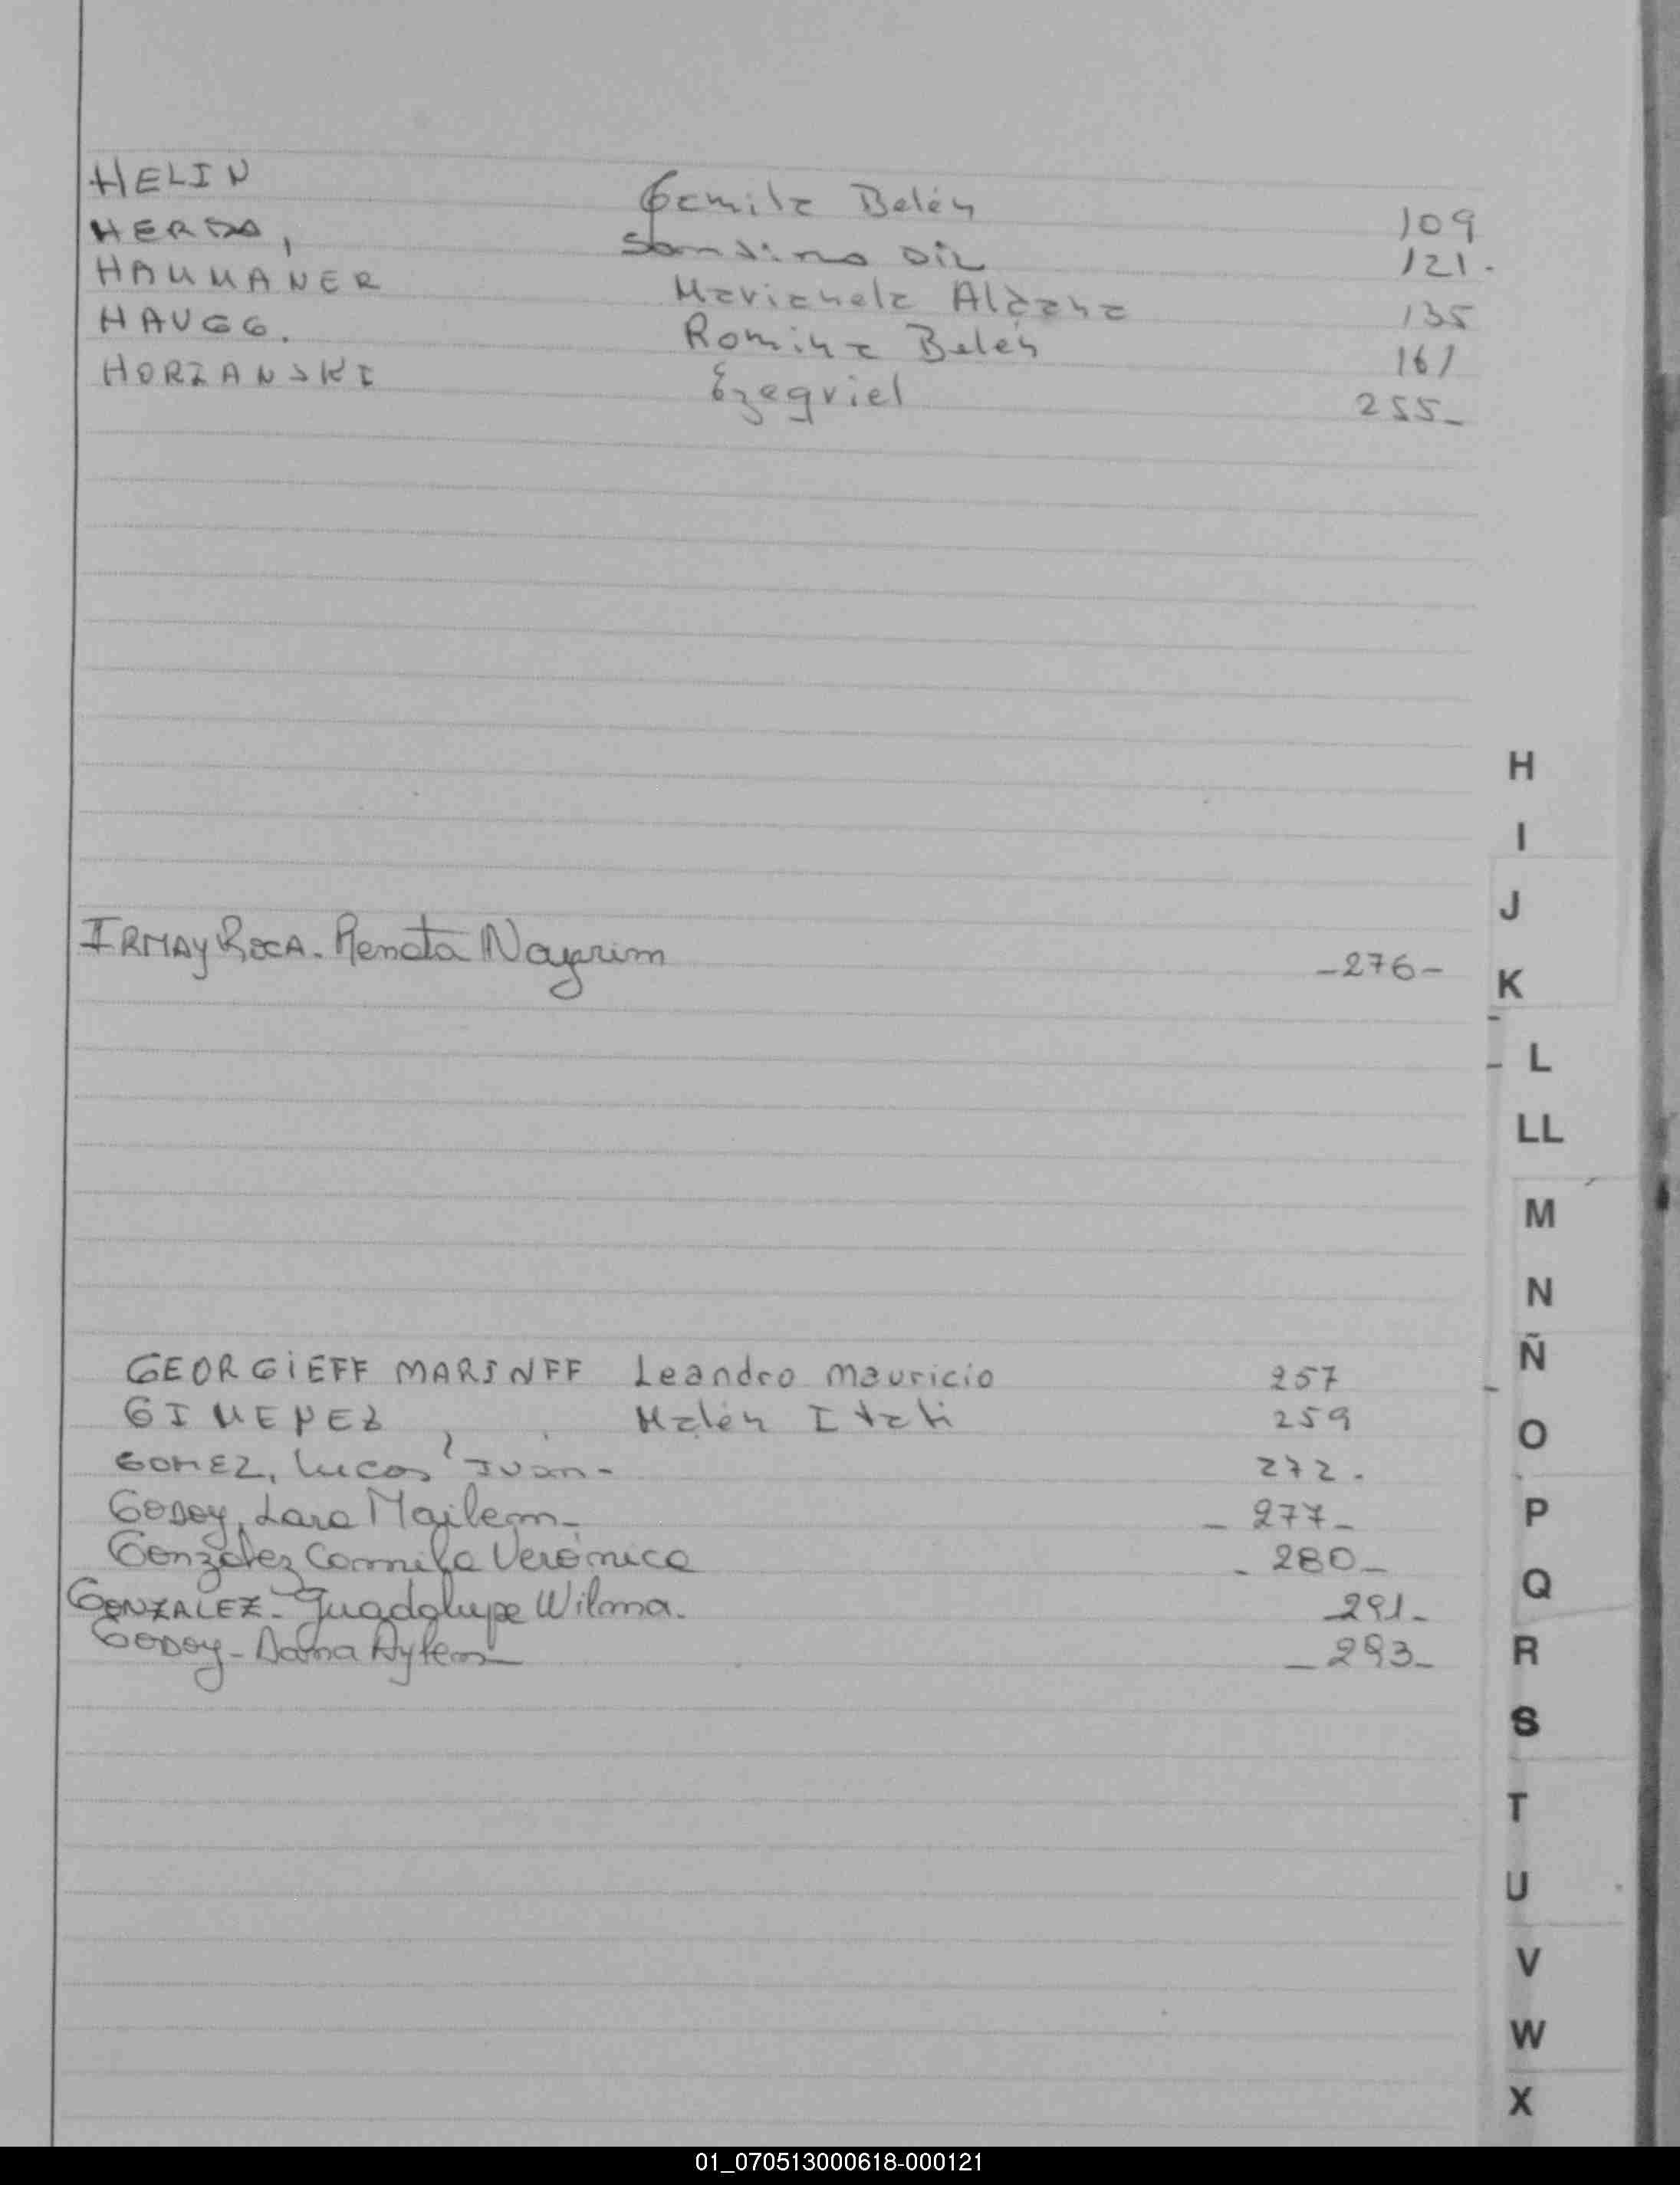 HELIN Camila Belén 109
HERDO, Sandino Oil 121.
HAMMANER Marianela Aldana 135
HAUGG. Romina Belén 161
HORZANSKI Ezequiel 255_
H
I
J
IRMAY ROCA. Renata Nayrim -276-
K
L
LL
M
N
Ñ
GEORGIEFF MARINFF Leandro Mauricio 257
GIMENEZ, Malén Itati 259
O
GOMEZ, Lucas Juan- 272.
GODOY, Lara Mailem- _ 277_
P
González Camila Verónica - 280_
Q
GONZALEZ- Guadalupe Wilma. _291_
GODOY- Dama Aylem_ _293_
R
S
T
U
V
W
X
01_070513000618-000121